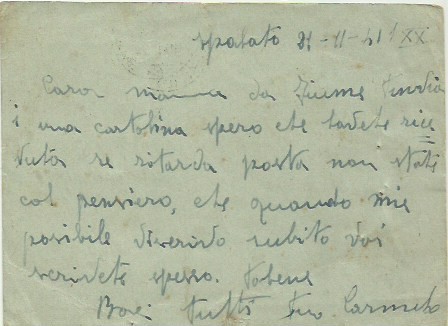 Spalato 21-11-41 XX
Cara mamma da Fiume
i una cartolina spero che lavete rice
vuta se ritarda posta non state
col pensiero, che quando mie
posibile discrivo subito voi
scrivete spesso. Tobene
Baci tutti tuo Carmelo